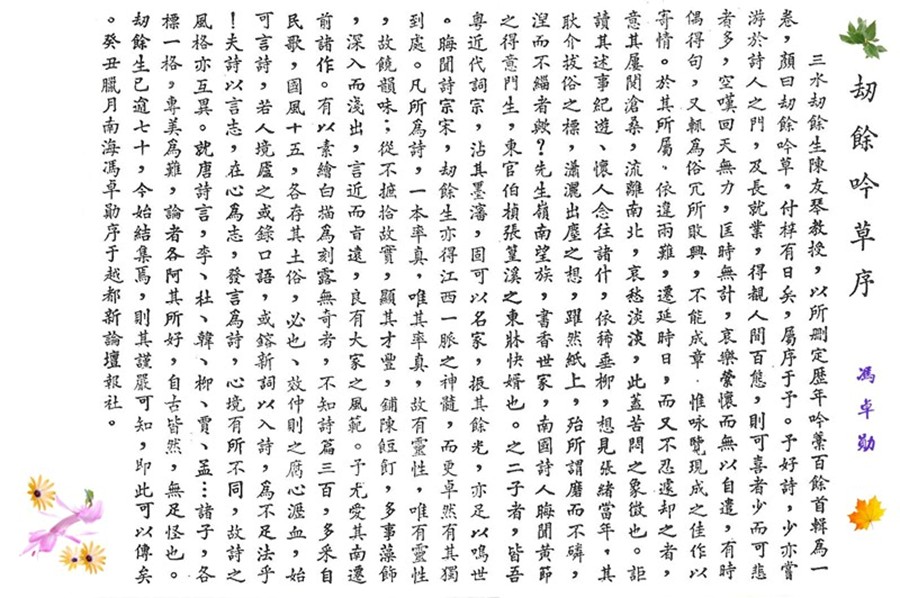 劫餘吟草序
馮卓勛
三水劫餘生陳友琴教授，以所刪定歷年吟藁百餘首輯為一
卷，顏曰劫餘吟草，付梓有日矣，屬序于予。予好詩，少亦嘗
游於詩人之門，及長就業，得覩人間百態，則可喜者少而可悲
者多，空嘆回天無力，匡時無計，哀樂縈懷而無以自遣，有時
偶得句，又輒為俗冗所敗興，不能成章．惟咏覽現成之佳作以
寄情。於其所屬．依違兩難，遷延時日，而又不忍遽却之者，
意其屢閱滄桑，流離南北，哀愁淡淡，此蓋苦悶之象徵也。詎
讀其述事紀遊、懷人念往諸什，依稀垂柳，想見張緒當年，其
耿介拔俗之標，瀟灑出塵之想，躍然紙上，殆所謂磨而不磷，
涅而不緇者歟？先生嶺南望族，書香世家，南國詩人晦聞黃節
之得意門生，東官伯楨張篁溪之東牀快婿也。之二子者，皆吾
粵近代詞宗，沾其墨瀋，固可以名家，振其餘光，亦足以鳴世
。晦聞詩宗宋，劫餘生亦得江西一脈之神髓，而更卓然有其獨
到處。凡所為詩，一本率真，唯其率真，故有靈性，唯有靈性
，故饒韻味；從不摭拾故實，顯其才豐，鋪陳飣餖，多事藻飾
，深入而淺出，言近而旨遠，良有大家之風範。予尤愛其南遷
前諸作。有以素繪白描為刻露無奇者，不知詩篇三百，多釆自
民歌，國風十五，各存其土俗，必也、效仲則之腐心涸血，始
可言詩，若人境廬之或錄口語，或鎔新詞以入詩，為不足法乎
！夫詩以言志，在心為志，發言為詩，心境有所不同，故詩之
風格亦互異。就唐詩言，李、杜、韓、柳、賈、孟…諸子，各
標一格，專美為難，論者各阿其所好，自古皆然，無足怪也。
劫餘生已逾七十，今始結集焉，則其謹嚴可知，即此可以傳矣
。癸丑臘月南海馮卓勛序于越都新論壇報社。